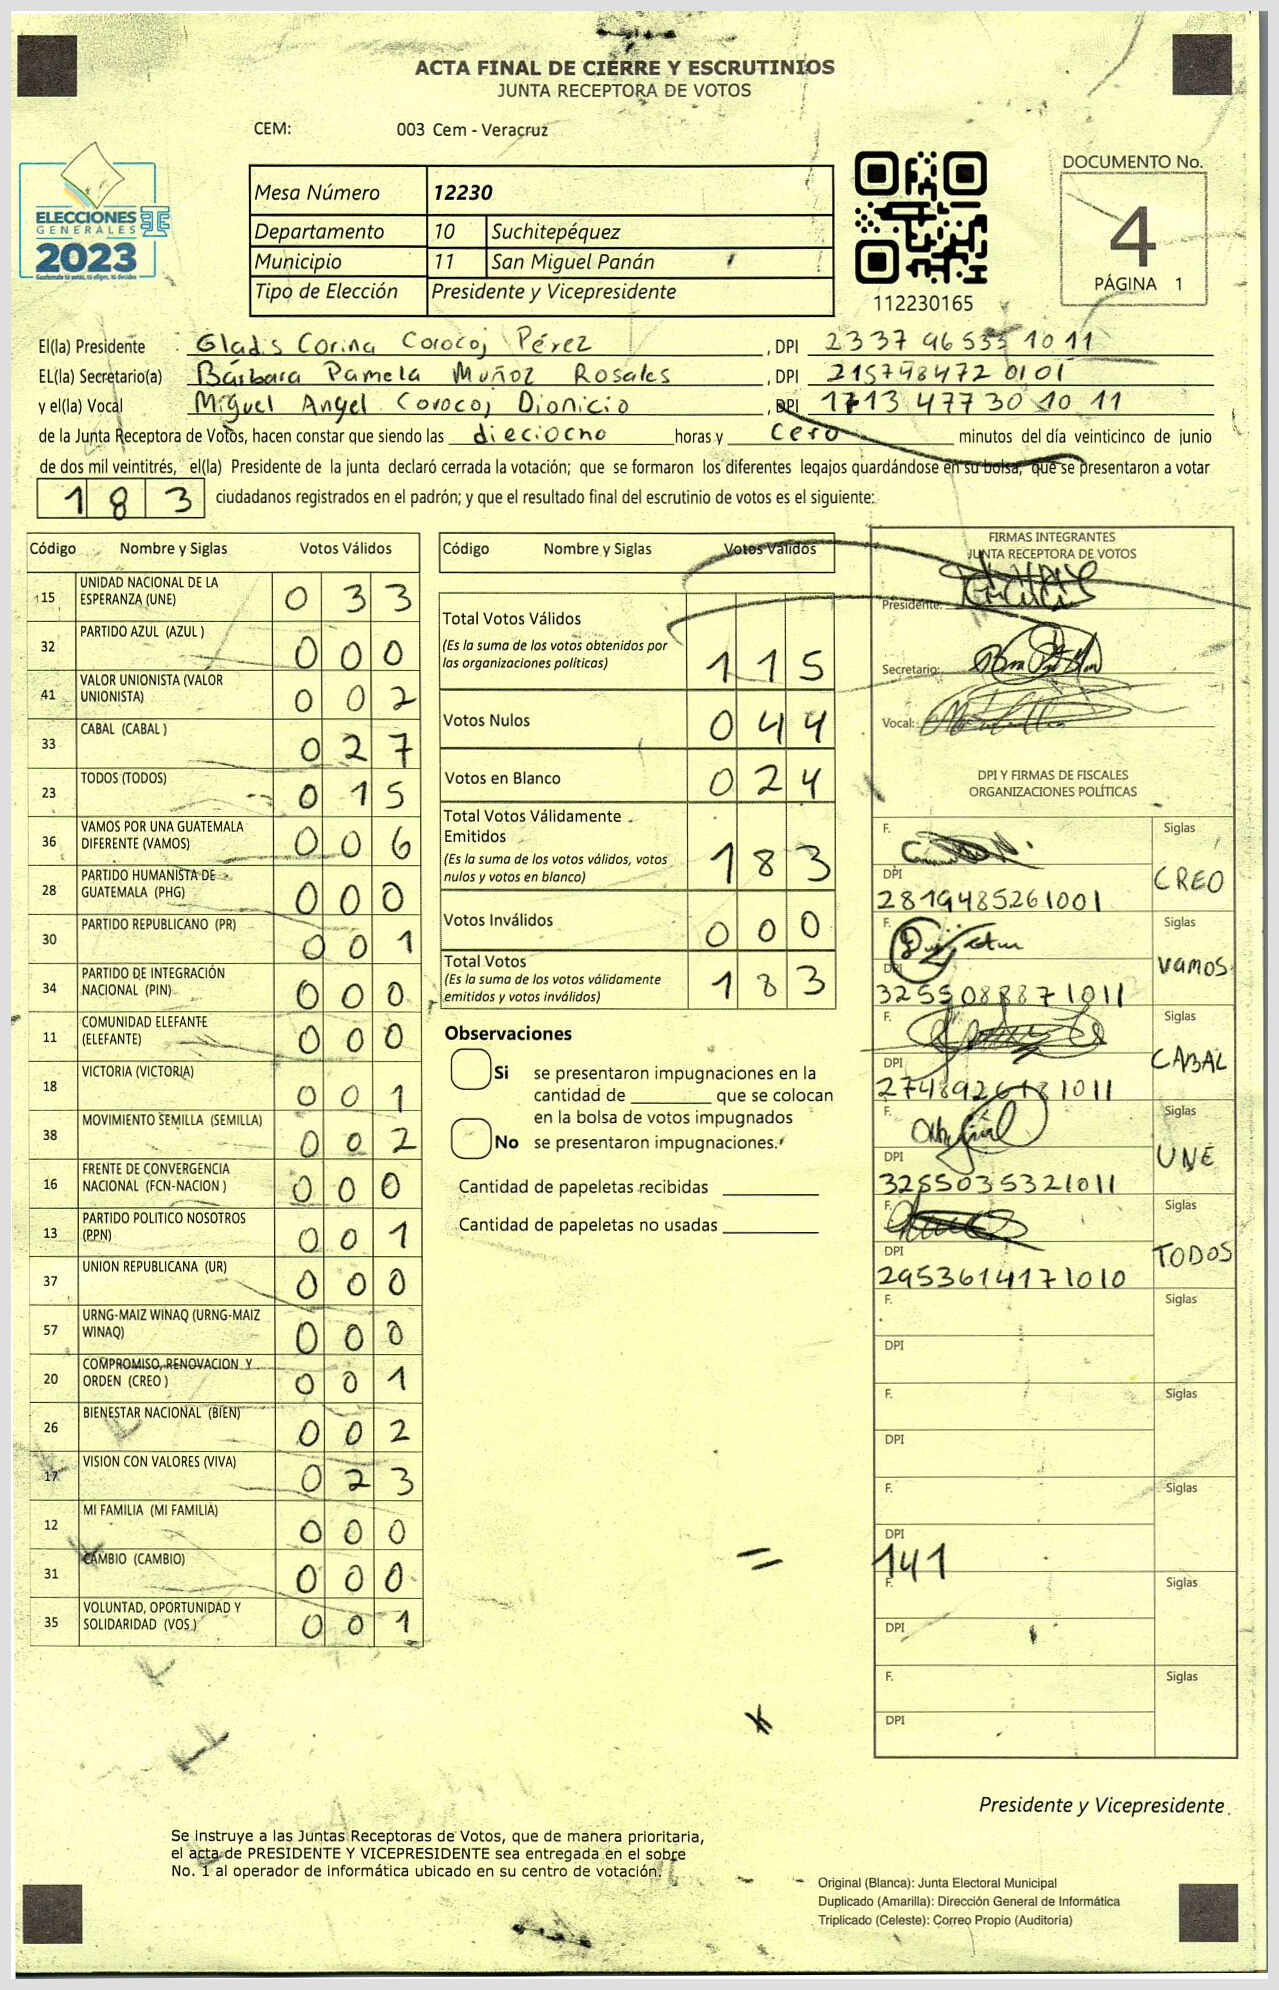 ACTA FINAL DE CIERRE Y ESCRUTINIOS
JUNTA RECEPTORA DE VOTOS
CEM: 003 Cem - Veracruz
ELECCIONES
GENERALES
2023
Mesa Número 12230
Departamento 10 Suchitepéquez
Municipio 11 San Miguel Panán
Tipo de Elección Presidente y Vicepresidente
112230165
DOCUMENTO No.
4
PÁGINA 1
El(la) Presidente Gladis Corina Corocoj Pérez , DPI 2337 96535 1011
EL(la) Secretario(a) Bárbara Pamela Muñoz Rosales , DPI 215798472 0101
y el(la) Vocal Miguel Angel Corocoj Dionicio , DPI 1713 47730 10 11
de la Junta Receptora de Votos, hacen constar que siendo las dieciocho horas y cero minutos del día veinticinco de junio
de dos mil veintitrés, el(la) Presidente de la junta declaró cerrada la votación; que se formaron los diferentes legajos guardándose en su bolsa, que se presentaron a votar
183 ciudadanos registrados en el padrón; y que el resultado final del escrutinio de votos es el siguiente:
Código Nombre y Siglas Votos Válidos
15 UNIDAD NACIONAL DE LA ESPERANZA (UNE) 033
32 PARTIDO AZUL (AZUL ) 000
41 VALOR UNIONISTA (VALOR UNIONISTA) 002
33 CABAL (CABAL ) 027
23 TODOS (TODOS) 015
36 VAMOS POR UNA GUATEMALA DIFERENTE (VAMOS) 006
28 PARTIDO HUMANISTA DE GUATEMALA (PHG) 000
30 PARTIDO REPUBLICANO (PR) 001
34 PARTIDO DE INTEGRACIÓN NACIONAL (PIN) 000
11 COMUNIDAD ELEFANTE (ELEFANTE) 000
18 VICTORIA (VICTORIA) 001
38 MOVIMIENTO SEMILLA (SEMILLA) 002
16 FRENTE DE CONVERGENCIA NACIONAL (FCN-NACION ) 000
13 PARTIDO POLITICO NOSOTROS (PPN) 001
37 UNION REPUBLICANA (UR) 000
57 URNG-MAIZ WINAQ (URNG-MAIZ WINAQ) 000
20 COMPROMISO, RENOVACION Y ORDEN (CREO ) 001
26 BIENESTAR NACIONAL (BIEN) 002
17 VISION CON VALORES (VIVA) 023
12 MI FAMILIA (MI FAMILIA) 000
31 CAMBIO (CAMBIO) 000
35 VOLUNTAD, OPORTUNIDAD Y SOLIDARIDAD (VOS ) 001
Código Nombre y Siglas Votos Válidos
Total Votos Válidos
(Es la suma de los votos obtenidos por
las organizaciones políticas) 115
Votos Nulos 044
Votos en Blanco 024
Total Votos Válidamente
Emitidos
(Es la suma de los votos válidos, votos
nulos y votos en blanco) 183
Votos Inválidos 000
Total Votos
(Es la suma de los votos válidamente
emitidos y votos inválidos) 183
Observaciones
Si se presentaron impugnaciones en la
cantidad de ________ que se colocan
en la bolsa de votos impugnados
No se presentaron impugnaciones.
Cantidad de papeletas recibidas
Cantidad de papeletas no usadas
FIRMAS INTEGRANTES
JUNTA RECEPTORA DE VOTOS
Presidente:
Secretario:
Vocal:
DPI Y FIRMAS DE FISCALES
ORGANIZACIONES POLÍTICAS
F. Siglas
CREO
DPI
2819485261001
F. Siglas
Vamos
DPI
3255088871011
F. Siglas
CABAL
DPI
2748926181011
F. Siglas
UNE
DPI
3255035321011
F. Siglas
TODOS
DPI
2953614171010
F. Siglas
DPI
F. Siglas
DPI
F. Siglas
DPI
141
F. Siglas
DPI
F. Siglas
DPI
Presidente y Vicepresidente
Se instruye a las Juntas Receptoras de Votos, que de manera prioritaria,
el acta de PRESIDENTE Y VICEPRESIDENTE sea entregada en el sobre
No. 1 al operador de informática ubicado en su centro de votación.
Original (Blanca): Junta Electoral Municipal
Duplicado (Amarilla): Dirección General de Informática
Triplicado (Celeste): Correo Propio (Auditoria)